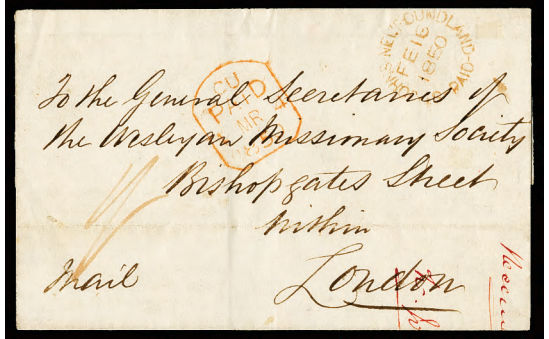 NEWFOUNDLAND
ST JOHNS
PAID
FE 16
1850
CU
PAID
MR
To the General Secretaries of
the Wesleyan Missionary Society
Bishopgates Street
Within
London
Mail